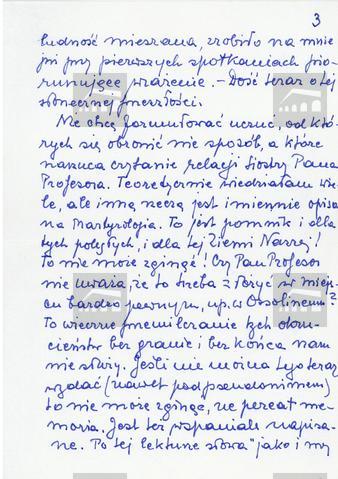 3
ludność mieszana, zrobiło na mnie
już przy pierwszych spotkaniach pio-
runujące wrażenie. – Dość teraz o tej
słonecznej przeszłości.
Nie chcę formułować uczuć, od któ-
rych się obronić nie sposób, a które
nasuwa czytanie relacji Siostry Pana
Profesora. Teoretycznie wiedziałam wie-
le, ale inną rzeczą jest imiennie opisa-
na Martyrologia. To jest pomnik i dla
tych poległych, i dla tej Ziemi Naszej!
To nie może zginąć! Czy Pan Profesor
nie uważa, że to trzeba złożyć w miejs-
cu bardzo pewnym, np. w Ossolineum?
To wieczne przemilczanie tych okru-
cieństw bez granic i bez końca nam
nie służy. Jeśli nie można tego teraz
wydać (nawet pod pseudonimem)
to nie może zginąć, ne pereat me-
moria. Jest też wspaniale napisa-
ne. Po tej lekturze słowa "jako i my